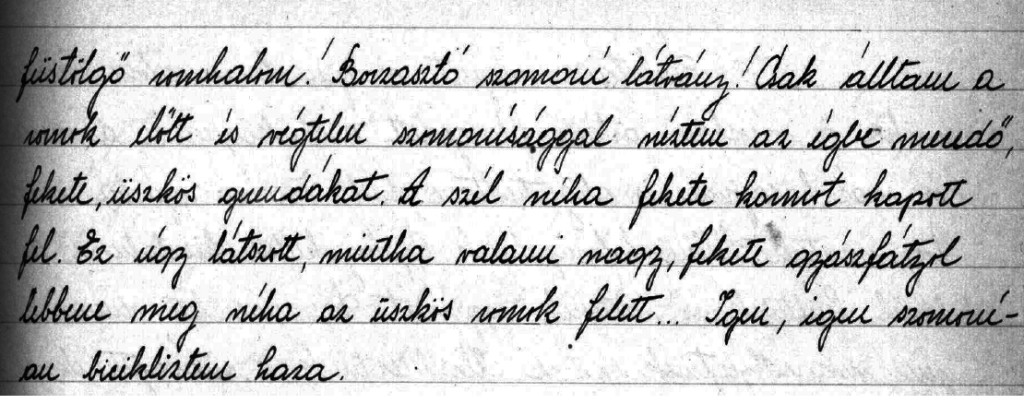 füstölgő romhalom! Borzasztó szomorú látvány! Csak álltam a
romok előtt és végtelen szomorúsággal néztem az égbe meredő,
fekete, üszkös gerendákat. A szél néha fekete kormot kapott
fel. Ez úgy látszott, mintha valami nagy, fekete gyászfátyol
lebbene meg néha az üszkös romok felett... Igen, igen szomorú-
an bicikliztem haza.